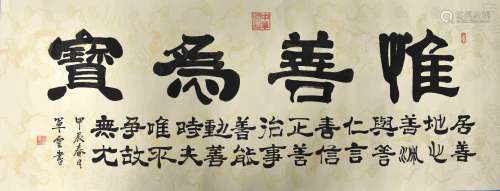 惟善為寶
居善
地心
善淵
與善
仁言
善信
正善
治事
善能
動善
時夫
唯不
爭故
無尤
甲辰春月
雲書